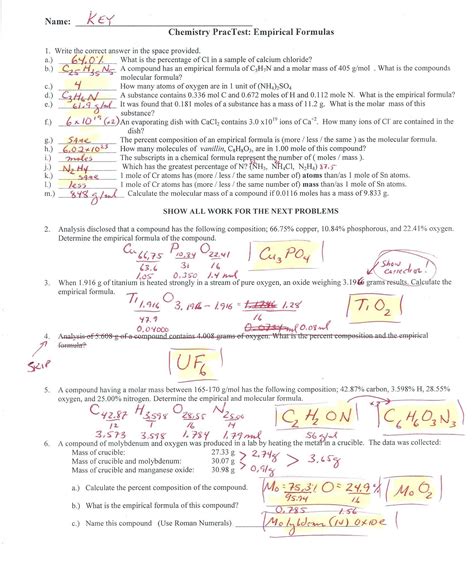 Name: KEY
Chemistry PracTest: Empirical Formulas
1. Write the correct answer in the space provided.
a.) 64.0% What is the percentage of Cl in a sample of calcium chloride?
b.) C25H35N5 A compound has an empirical formula of C5H7N and a molar mass of 405 g/mol . What is the compounds
molecular formula?
c.) 4 How many atoms of oxygen are in 1 unit of (NH4)2SO4
d.) C3H6N A substance contains 0.336 mol C and 0.672 moles of H and 0.112 mole N. What is the empirical?
e.) 61.9 g/mol It was found that 0.181 moles of a substance has a mass of 11.2 g. What is the molar mass of this
substance?
f.) 6 x 10^19 (x2) An evaporating dish with CaCl2 contains 3.0 x10^19 ions of Ca^+2. How many ions of Cl^- are contained in the
dish?
g.) same The percent composition of an empirical formula is (more / less / the same ) as the molecular formula.
h.) 6.02x10^23 How many molecules of vanillin, C8H8O3, are in 1.00 mole of this compound?
i.) moles The subscripts in a chemical formula represent the number of ( moles / mass ).
j.) N2H4 Which has the greatest percentage of N? (NH3, NH4Cl, N2H4) 87.5
k.) same 1 mole of Cr atoms has (more / less / the same number of) atoms than/as 1 mole of Sn atoms.
l.) less 1 mole of Cr atoms has (more / less / the same number of) mass than/as 1 mole of Sn atoms.
m.) 848 g/mol Calculate the molecular mass of a compound if 0.0116 moles has a mass of 9.833 g.
SHOW ALL WORK FOR THE NEXT PROBLEMS
2. Analysis disclosed that a compound has the following composition; 66.75% copper, 10.84% phosphorous, and 22.41% oxygen.
Determine the empirical formula of the compound.
Cu 66.75 P 10.84 O 22.41
63.6 31 16
1.05 0.350 1.4 mol
Cu3PO4
Show correction!
3. When 1.916 g of titanium is heated strongly in a stream of pure oxygen, an oxide weighing 3.196 grams results. Calculate the
empirical formula.
Ti 1.916 O 3.196 - 1.916 = 1.28
47.9 16
0.04000 0.08 mol
TiO2
4. Analysis of 5.608 g of a compound contains 4.008 grams of oxygen. What is the percent composition and the empirical
formula?
SKIP
UF6
5. A compound having a molar mass between 165-170 g/mol has the following composition; 42.87% carbon, 3.598% H, 28.55%
oxygen, and 25.00% nitrogen. Determine the empirical and molecular formula.
C 42.87 H 3.598 O 28.55 N 25.00
12 1 16 14
3.573 3.598 1.784 1.79 mol
C2H2ON x3 C6H6O3N3
56 g/mol
6. A compound of molybdenum and oxygen was produced in a lab by heating the metal in a crucible. The data was collected:
Mass of crucible: 27.33 g 2.74g
Mass of crucible and molybdenum: 30.07 g 3.65g
Mass of crucible and manganese oxide: 30.98 g 0.91g
a.) Calculate the percent composition of the compound. Mo = 75.31 O = 24.9%
95.94 16
MoO2
b.) What is the empirical formula of this compound? 0.785 1.56
c.) Name this compound (Use Roman Numerals) Molybdenum (IV) oxide